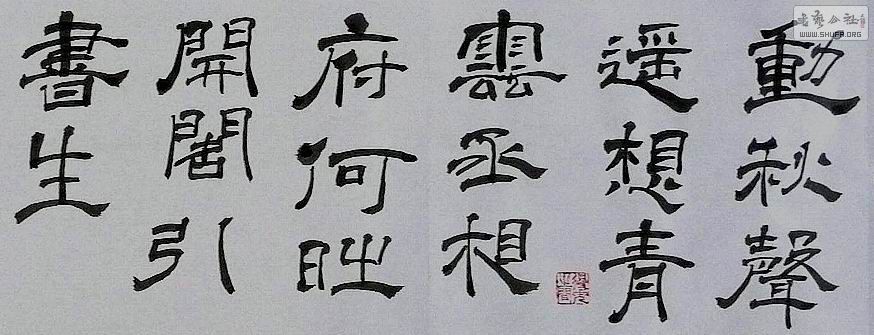 書藝公社
WWW.SHUFA.ORG
動秋聲
遥想青
雲丞相
府何時
開閣引
書生